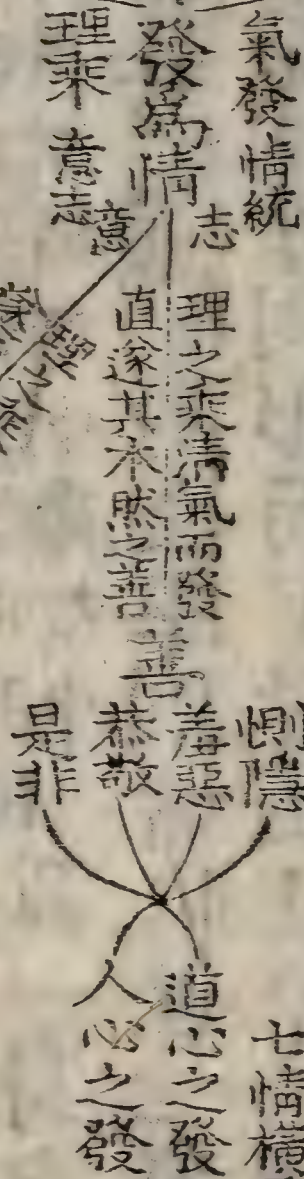 氣發情統
理乘意志
發爲情
志
意
理之乘清氣而發
直遂其本然之善
善
惻隱
羞惡
恭敬
是非
七情橫
道心之發
人心之發